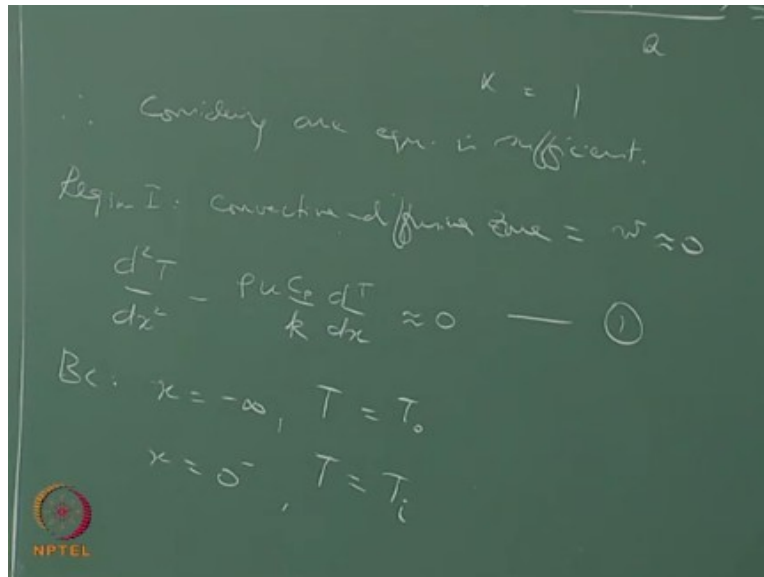 Q
K = 1
∴ Considering one eqn. is sufficient.
Region I: convective-diffusive zone = w ≈ 0
d²T/dx² - ρu Cp/k dT/dx ≈ 0 — ①
BC: x = -∞, T = T₀
x = 0⁻, T = Tᵢ
NPTEL